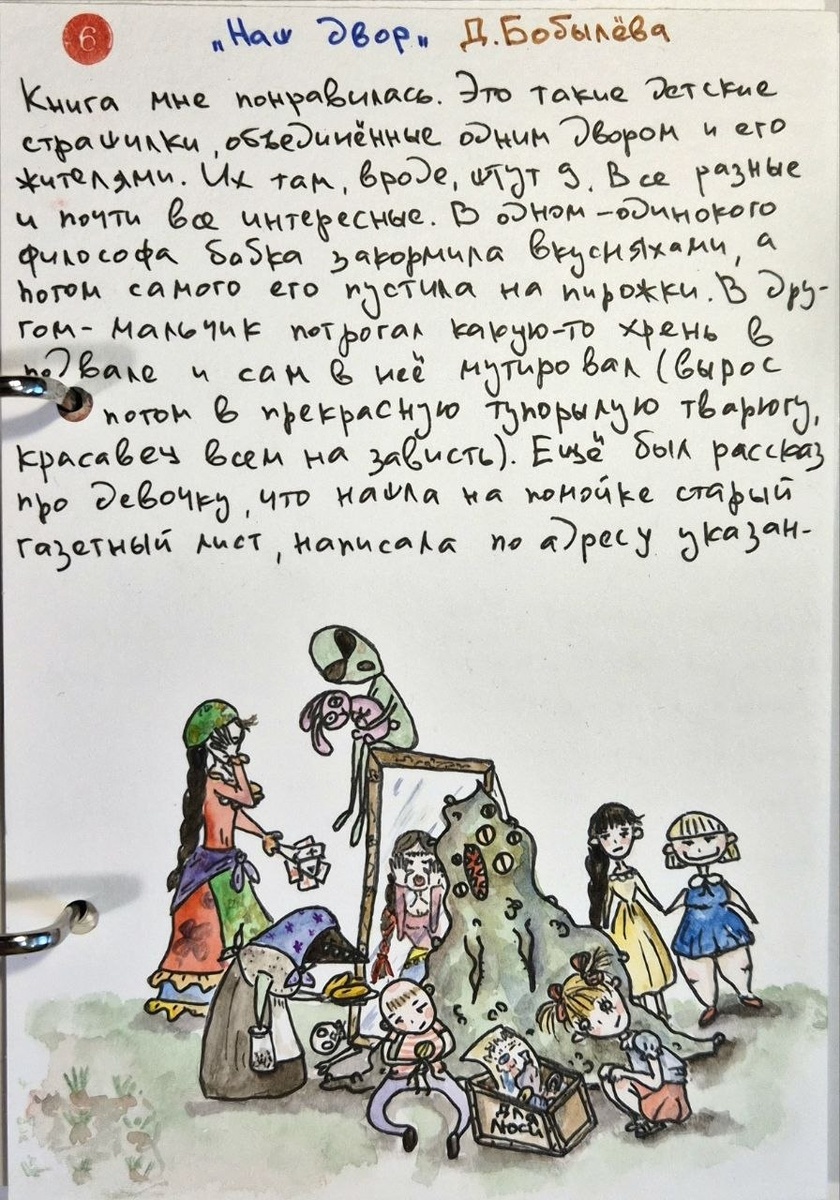 6 "Наш двор" Д.Бобылёва
Книга мне понравилась. Это такие детские
страшилки, объединённые одним двором и его
жителями. Их там, вроде, штут 9. Все разные
и почти все интересные. В одном - одинокого
философа бабка закормила вкусняхами, а
потом самого его пустила на пирожки. В дру-
гом - мальчик потрогал какую-то хрень в
подвале и сам в неё мутировал (вырос
потом в прекрасную тупорылую тварюгу,
красавец всем на зависть). Ещё был рассказ
про девочку, что нашла на помойке старый
газетный лист, написала по адресу указан-
Для
Люси